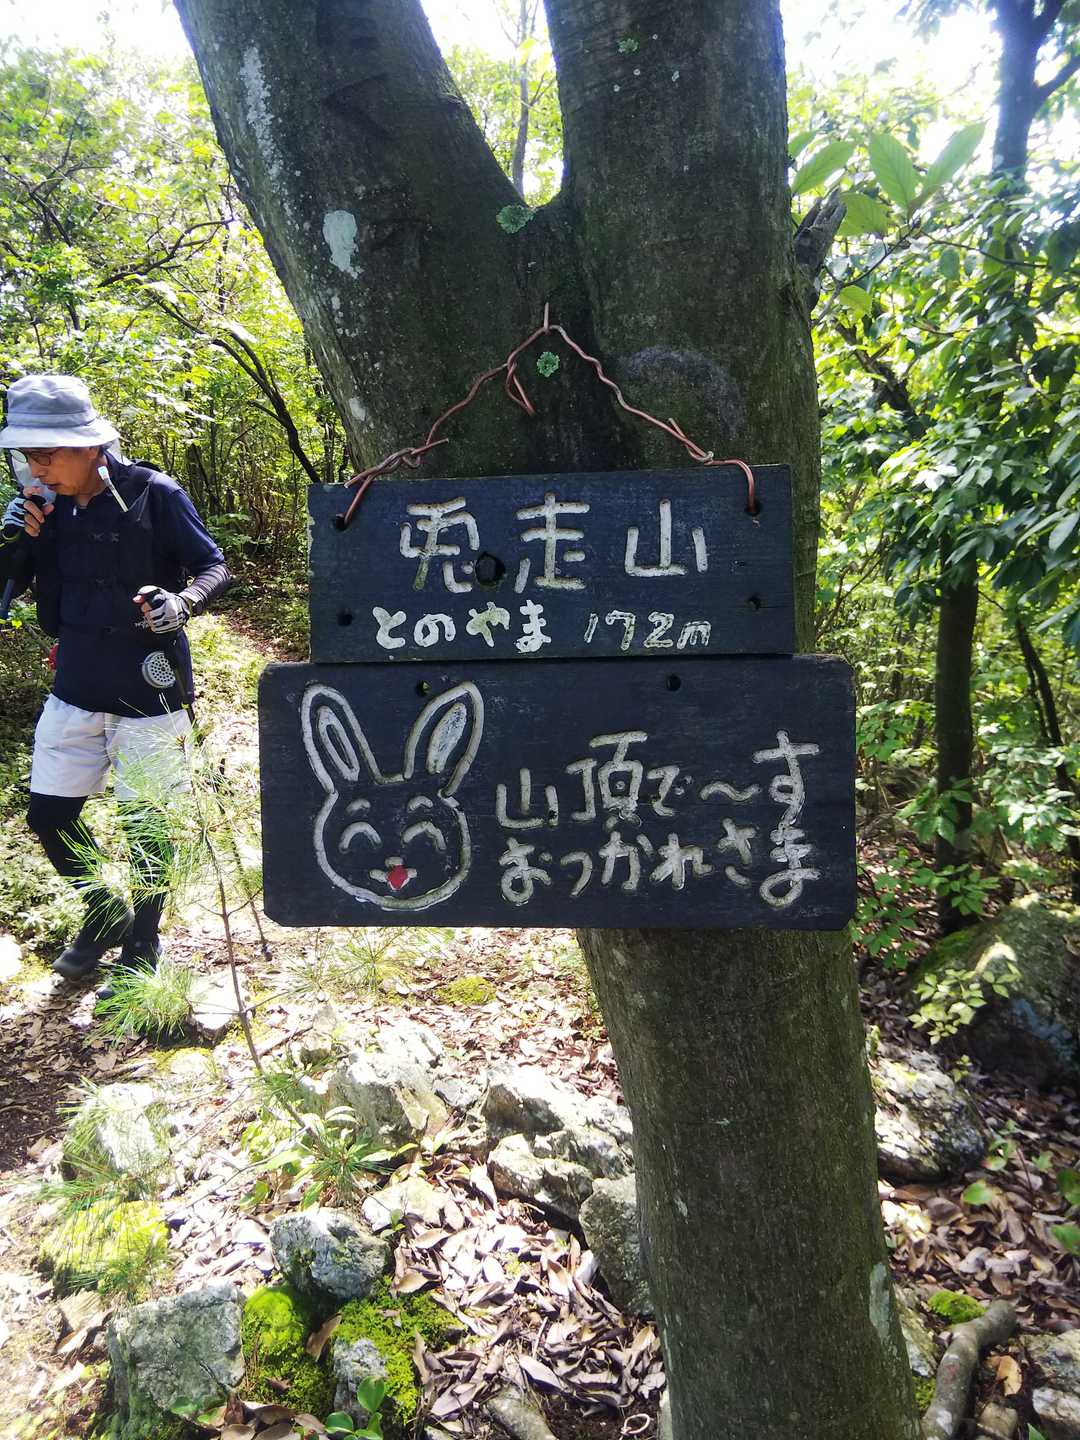 兎走山
とのやま 172m
山頂で〜す
おつかれさま